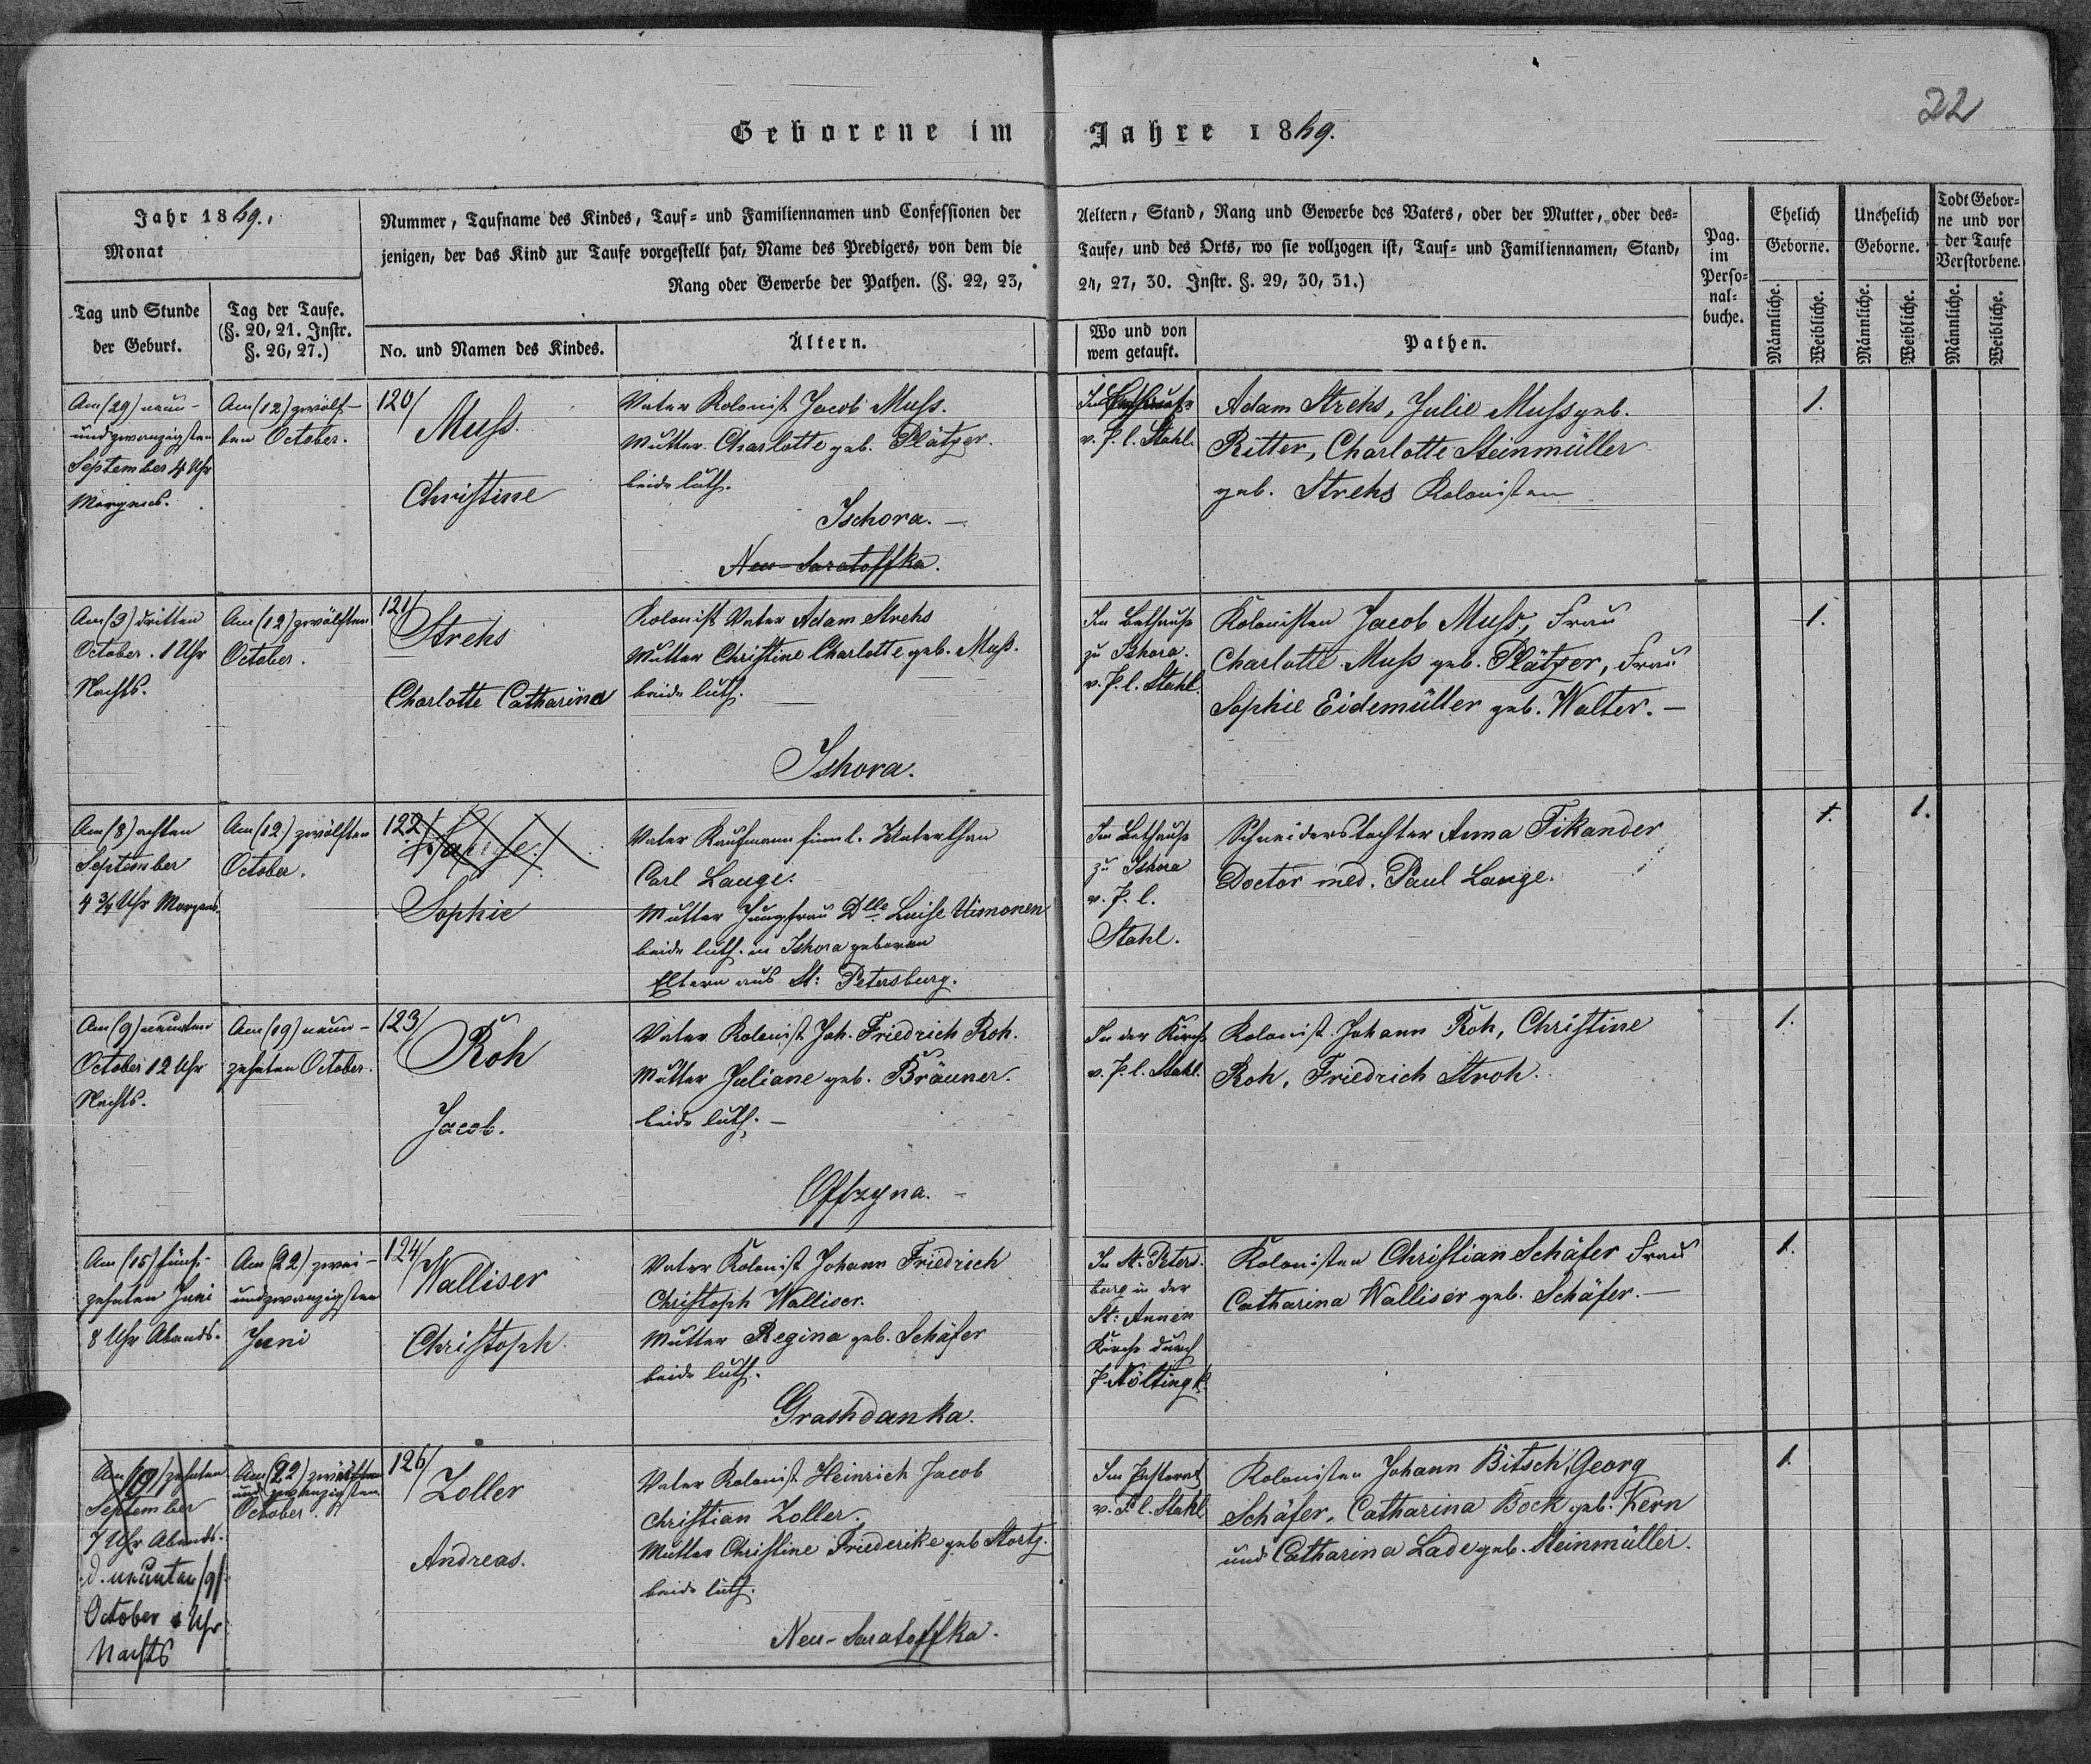 22
Geborene im Jahre 1869.
Jahr 1869.
Monat
Tag und Stunde
der Geburt.
Tag der Taufe.
(§. 20, 21. Instr.
§. 26, 27.)
Nummer, Taufname des Kindes, Tauf- und Familiennamen und Confessionen der
jenigen, der das Kind zur Taufe vorgestellt hat, Name des Predigers, von dem die
Rang oder Gewerbe der Pathen. (§. 22, 23,
No. und Namen des Kindes.
Ältern.
Aeltern, Stand, Rang und Gewerbe des Vaters, oder der Mutter, oder des-
Taufe, und des Orts, wo sie vollzogen ist, Tauf- und Familiennamen, Stand,
24, 27, 30. Instr. §. 29, 30, 31.)
Wo und von
wem getauft.
Pathen.
Pag.
im
Perso-
nal-
buche.
Ehelich
Geborne.
Unehelich
Geborne.
Todt Gebor-
ne und vor
der Taufe
Verstorbene.
Männliche.
Weibliche.
Männliche.
Weibliche.
Männliche.
Weibliche.
Am (29) neun-
undzwanzigsten
September 4 Uhr
Morgens.
Am (12) zwölf-
ten October.
120/
Muss
Christine
Vater Kolonist Jacob Muss.
Mutter Charlotte geb. Plätzer.
beide luth.
Ischora. —
Neu-Saratoffka.
Im Bethause
v. P. l. Stahl.
Adam Strehs, Julie Muss geb.
Ritter, Charlotte Steinmüller
geb. Strehs Kolonisten
1.
Am (3) dritten
October. 1 Uhr
Nachts.
Am (12) zwölften
October.
121/
Strehs
Charlotte Catharina
Kolonist Vater Adam Strehs
Mutter Christine Charlotte geb. Muss.
beide luth. —
Ishora.
Im Bethause
zu Ishora.
v. P. l. Stahl.
Kolonisten Jacob Muss, Frau
Charlotte Muss geb. Plätzer, Frau
Sophie Eidemüller geb. Walter. —
1.
Am (8) achten
September
4 3/4 Uhr Morgens.
Am (12) zwölften
October.
122/
Sophie
Vater Kaufmann finnl. Unterthan
Carl Lange.
Mutter Jungfrau Dlle. Luise Uimonen
beide luth. in Ishora geboren
Eltern aus St: Petersburg.
Im Bethause
zu Ishora
v. P. l.
Stahl.
Schneiderstochter Anna Tikander
Doctor med. Paul Lange.
1.
1.
Am (9) neunten
October 12 Uhr
Nachts.
Am (19) neun-
zehnten October.
123/
Roh
Jacob.
Vater Kolonist Joh. Friedrich Roh.
Mutter Juliane geb. Bräuner.
beide luth. —
Offzyna. —
In der Kirche
v. P. l. Stahl.
Kolonist Johann Roh, Christine
Roh, Friedrich Stroh.
1.
Am (15) fünf-
zehnten Juni
8 Uhr Abends.
Am (22) zwei-
undzwanzigsten
Juni
124/
Walliser
Christoph
Vater Kolonist Johann Friedrich
Christoph Walliser.
Mutter Regina geb. Schäfer
beide luth.
Grashdanka.
In St. Peters-
burg in der
St: Annen
Kirche durch
P. Nöltingk.
Kolonisten Christian Schäfer Frau
Catharina Walliser geb. Schäfer. —
1.
Am (10) zehnten
September
7 Uhr Abends.
d. neunten /9/
October Uhr
Nachts
Am (22) zwölften
und zwanzigsten
October.
126/
Zoller
Andreas.
Vater Kolonist Heinrich Jacob
Christian Zoller.
Mutter Christine Friederike geb Stortz.
beide luth.
Neu-Saratoffka.
Im Pastorat
v. P. l. Stahl
Kolonisten Johann Bitsch, Georg
Schäfer, Catharina Bock geb. Kern
und Catharina Lade geb. Steinmüller.
1.